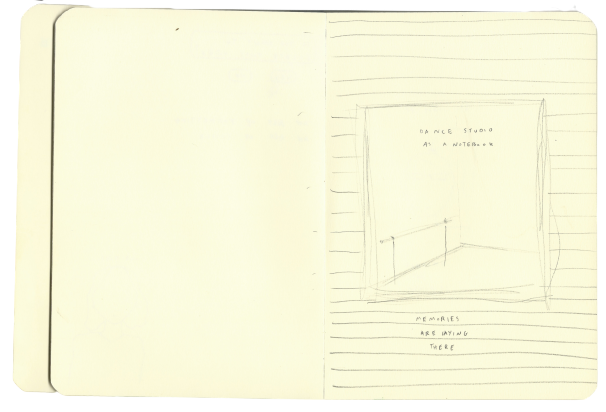 DANCE STUDIO
AS A NOTEBOOK
MEMORIES
ARE LAYING
THERE